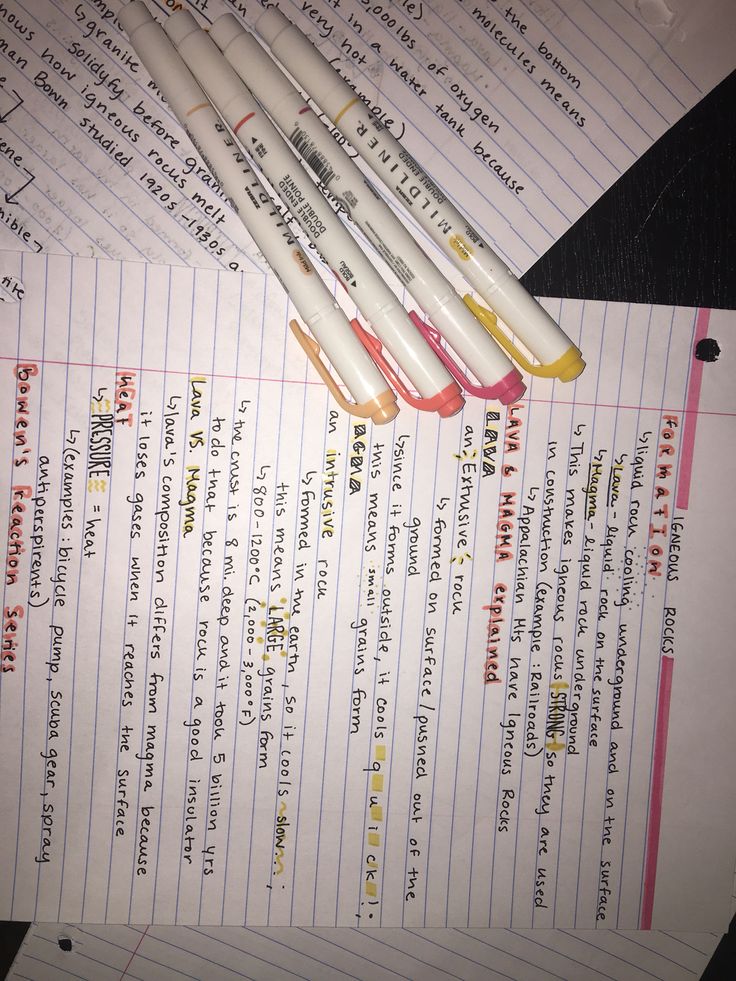 IGNEOUS ROCKS
FORMATION
↳ liquid rock cooling underground and on the surface
↳ Lava - liquid rock on the surface
↳ Magma - liquid rock underground
↳ This makes igneous rocks STRONG so they are used
in construction (example: Railroads)
↳ Appalachian Mts have Igneous Rocks
LAVA & MAGMA explained
LAVA
an Extrusive rock
↳ formed on surface/pushed out of the
ground
↳ since it forms outside, it cools quick!
this means small grains form
MAGMA
an intrusive rock
↳ formed in the earth, so it cools slow;
this means LARGE grains form
↳ 800-1200°C (2,000-3,000°F)
↳ the crust is 8 mi. deep and it took 5 billion yrs
to do that because rock is a good insulator
Lava VS. Magma
↳ lava's composition differs from magma because
it loses gases when it reaches the surface
HEAT
↳ PRESSURE = heat
↳ (examples: bicycle pump, scuba gear, spray
antiperspirents)
Bowen's Reaction Series
the bottom
molecules means
,000 lbs of oxygen
it in a water tank because
very hot
(example)
↳ granite
solidyfy before grani
how igneous rocks melt
man Bown studied 1920s-1930s
MILDLINER
DOUBLE ENDED
ZEBRA
MILDLINER
DOUBLE ENDED
DOUBLE POINTE
BOLD